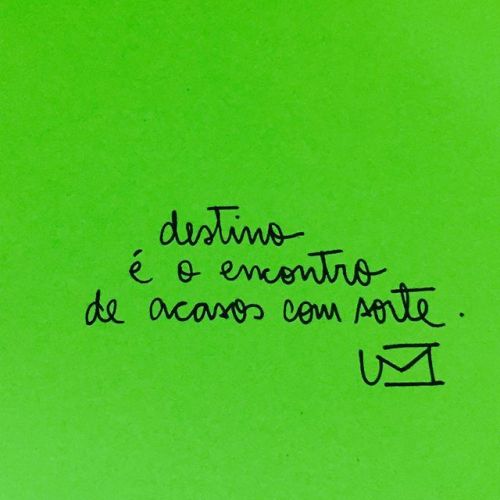 destino
é o encontro
de acasos com sorte.